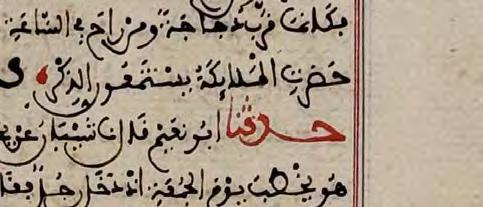 فكانما قرب دجاجة ومن راح في الساعة
حضرت الملائكة يستمعون الذكر
حدثنا ابو نعيم قال نا شيبان عن يح
هو يخطب يوم الجمعة اذ دخل رجل فقا